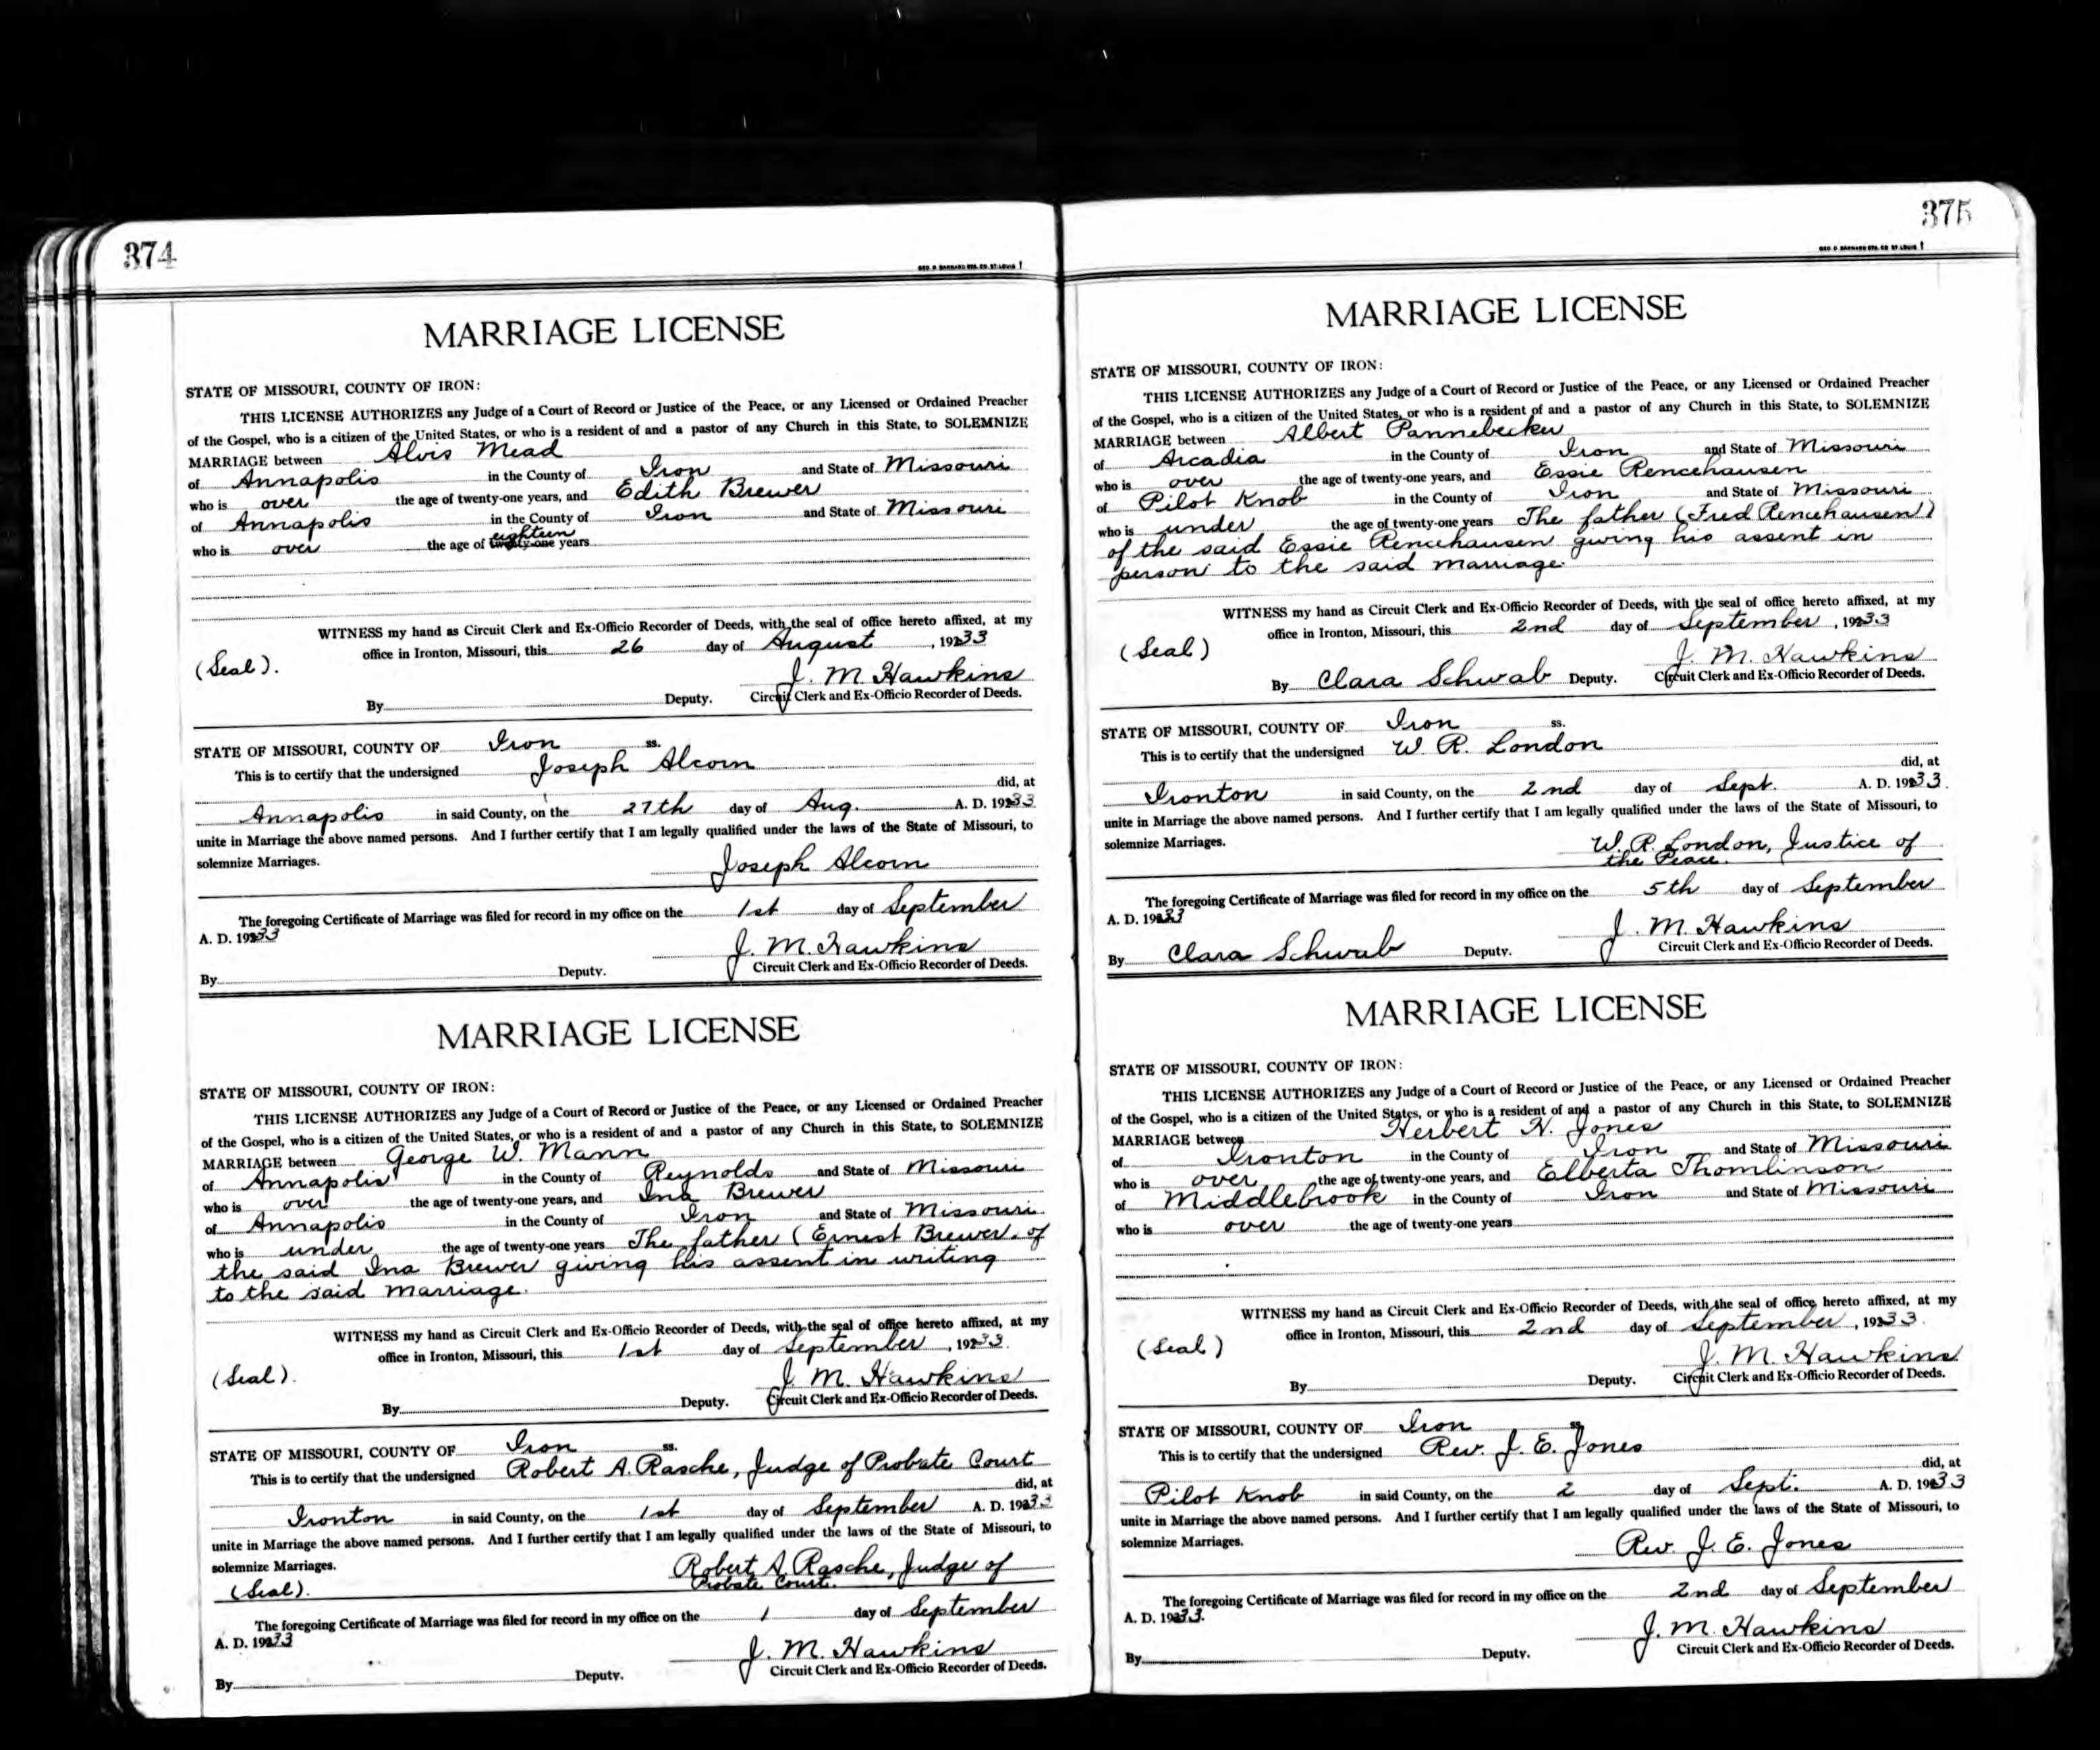 374
GEO. D. BARNARD STA. CO. ST. LOUIS
MARRIAGE LICENSE
STATE OF MISSOURI, COUNTY OF IRON:
THIS LICENSE AUTHORIZES any Judge of a Court of Record or Justice of the Peace, or any Licensed or Ordained Preacher
of the Gospel, who is a citizen of the United States, or who is a resident of and a pastor of any Church in this State, to SOLEMNIZE
MARRIAGE between Alvis Mead
of Annapolis in the County of Iron and State of Missouri
who is over the age of twenty-one years, and Edith Brewer
of Annapolis in the County of Iron and State of Missouri
who is over the age of twenty-one eighteen years
WITNESS my hand as Circuit Clerk and Ex-Officio Recorder of Deeds, with the seal of office hereto affixed, at my
office in Ironton, Missouri, this 26 day of August, 1933
(Seal).
J. M. Hawkins
By Deputy. Circuit Clerk and Ex-Officio Recorder of Deeds.
STATE OF MISSOURI, COUNTY OF Iron ss.
This is to certify that the undersigned Joseph Alcorn
did, at
Annapolis in said County, on the 27th day of Aug. A. D. 1933
unite in Marriage the above named persons. And I further certify that I am legally qualified under the laws of the State of Missouri, to
solemnize Marriages.
Joseph Alcorn
The foregoing Certificate of Marriage was filed for record in my office on the 1st day of September
A. D. 1933
J. M. Hawkins
By Deputy. Circuit Clerk and Ex-Officio Recorder of Deeds.
MARRIAGE LICENSE
STATE OF MISSOURI, COUNTY OF IRON:
THIS LICENSE AUTHORIZES any Judge of a Court of Record or Justice of the Peace, or any Licensed or Ordained Preacher
of the Gospel, who is a citizen of the United States, or who is a resident of and a pastor of any Church in this State, to SOLEMNIZE
MARRIAGE between George W. Mann
of Annapolis in the County of Reynolds and State of Missouri
who is over the age of twenty-one years, and Ina Brewer
of Annapolis in the County of Iron and State of Missouri
who is under the age of twenty-one years The father (Ernest Brewer. of
the said Ina Brewer giving his assent in writing
to the said marriage.
WITNESS my hand as Circuit Clerk and Ex-Officio Recorder of Deeds, with the seal of office hereto affixed, at my
office in Ironton, Missouri, this 1st day of September, 1933.
(Seal).
J. M. Hawkins
By Deputy. Circuit Clerk and Ex-Officio Recorder of Deeds.
STATE OF MISSOURI, COUNTY OF Iron ss.
This is to certify that the undersigned Robert A. Rasche, Judge of Probate Court
did, at
Ironton in said County, on the 1st day of September A. D. 1933
unite in Marriage the above named persons. And I further certify that I am legally qualified under the laws of the State of Missouri, to
solemnize Marriages.
(Seal).
Robert A. Rasche, Judge of
Probate Court.
The foregoing Certificate of Marriage was filed for record in my office on the 1 day of September
A. D. 1933
J. M. Hawkins
By Deputy. Circuit Clerk and Ex-Officio Recorder of Deeds.
375
GEO. D. BARNARD STA. CO. ST. LOUIS
MARRIAGE LICENSE
STATE OF MISSOURI, COUNTY OF IRON:
THIS LICENSE AUTHORIZES any Judge of a Court of Record or Justice of the Peace, or any Licensed or Ordained Preacher
of the Gospel, who is a citizen of the United States, or who is a resident of and a pastor of any Church in this State, to SOLEMNIZE
MARRIAGE between Albert Pannebecker
of Arcadia in the County of Iron and State of Missouri
who is over the age of twenty-one years, and Essie Rencehausen
of Pilot Knob in the County of Iron and State of Missouri
who is under the age of twenty-one years The father (Fred Rencehausen)
of the said Essie Rencehausen giving his assent in
person to the said marriage.
WITNESS my hand as Circuit Clerk and Ex-Officio Recorder of Deeds, with the seal of office hereto affixed, at my
office in Ironton, Missouri, this 2nd day of September, 1933
(Seal)
J. M. Hawkins
By Clara Schwab Deputy. Circuit Clerk and Ex-Officio Recorder of Deeds.
STATE OF MISSOURI, COUNTY OF Iron ss.
This is to certify that the undersigned W. R. London
did, at
Ironton in said County, on the 2nd day of Sept. A. D. 1933.
unite in Marriage the above named persons. And I further certify that I am legally qualified under the laws of the State of Missouri, to
solemnize Marriages.
W. R. London, Justice of
the Peace.
The foregoing Certificate of Marriage was filed for record in my office on the 5th day of September
A. D. 1933
J. M. Hawkins
By Clara Schwab Deputy. Circuit Clerk and Ex-Officio Recorder of Deeds.
MARRIAGE LICENSE
STATE OF MISSOURI, COUNTY OF IRON:
THIS LICENSE AUTHORIZES any Judge of a Court of Record or Justice of the Peace, or any Licensed or Ordained Preacher
of the Gospel, who is a citizen of the United States, or who is a resident of and a pastor of any Church in this State, to SOLEMNIZE
MARRIAGE between Herbert H. Jones
of Ironton in the County of Iron and State of Missouri
who is over the age of twenty-one years, and Elberta Thomlinson
of Middlebrook in the County of Iron and State of Missouri
who is over the age of twenty-one years
WITNESS my hand as Circuit Clerk and Ex-Officio Recorder of Deeds, with the seal of office hereto affixed, at my
office in Ironton, Missouri, this 2nd day of September, 1933.
(Seal)
J. M. Hawkins
By Deputy. Circuit Clerk and Ex-Officio Recorder of Deeds.
STATE OF MISSOURI, COUNTY OF Iron ss.
This is to certify that the undersigned Rev. J. E. Jones
did, at
Pilot Knob in said County, on the 2 day of Sept. A. D. 1933
unite in Marriage the above named persons. And I further certify that I am legally qualified under the laws of the State of Missouri, to
solemnize Marriages.
Rev. J. E. Jones
The foregoing Certificate of Marriage was filed for record in my office on the 2nd day of September
A. D. 1933.
J. M. Hawkins
By Deputy. Circuit Clerk and Ex-Officio Recorder of Deeds.